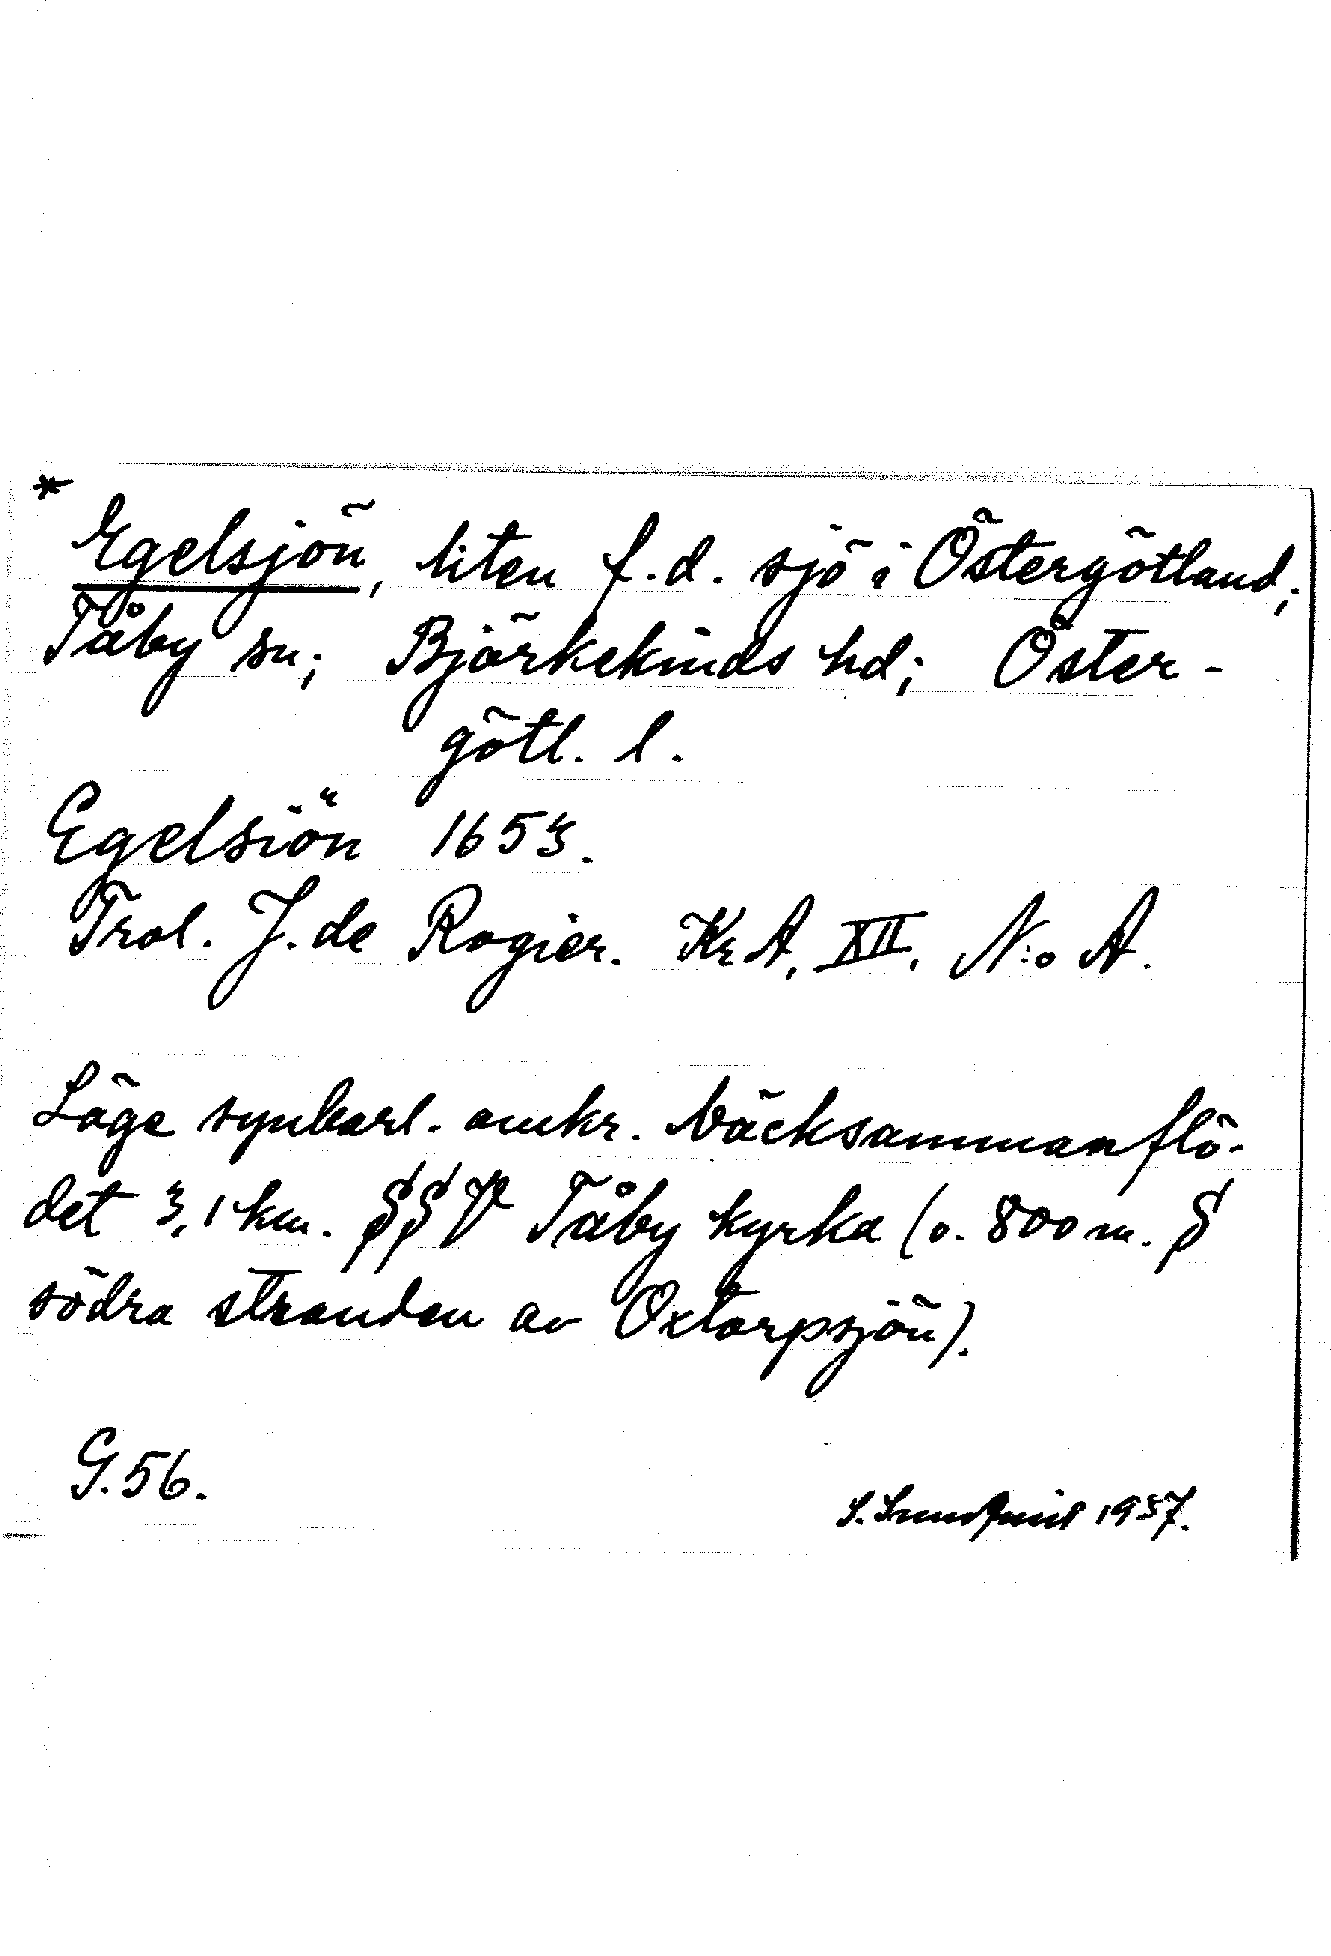 * Egelsjön, liten f.d. sjö i Östergötland;
Tåby sn; Björkekinds hd; Öster-
götl. l.
Egelsiön 1653.
Trol. J. de Rogier. KrA, XII, N:o A.
Läge synbarl. omkr. bäcksammanflö-
det 3,1 km. SSV Tåby kyrka (o. 800 m. S
södra stranden av Oxtorpsjön).
G. 56.
S. Lundquist 1957.